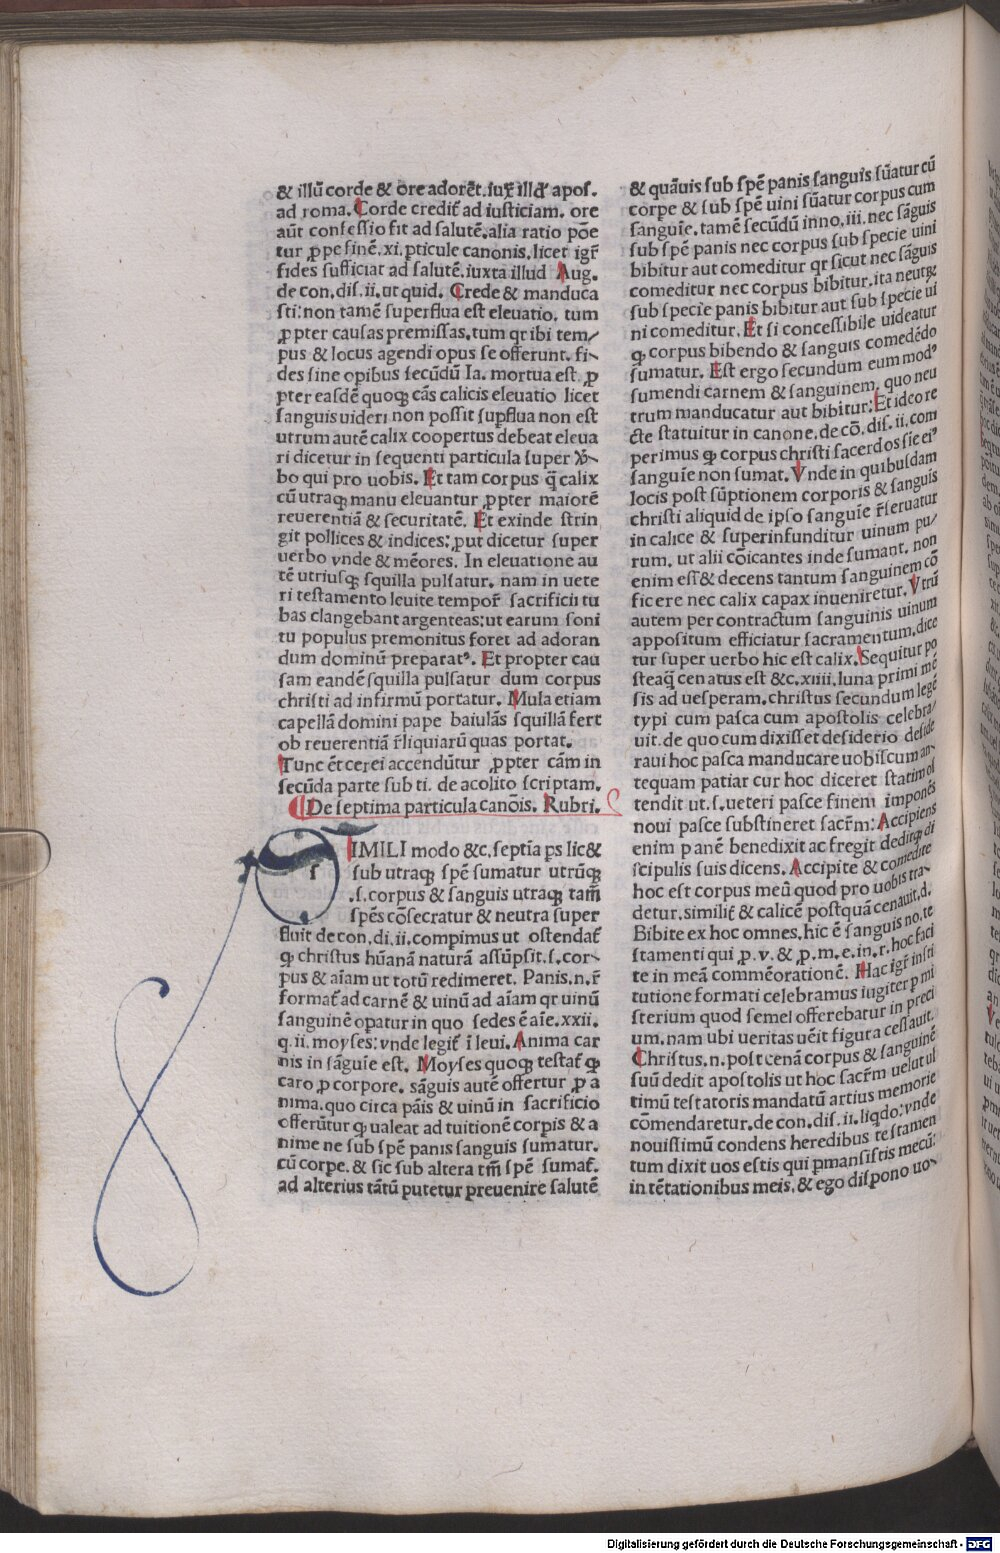 & illũ corde & ore adorẽt. iuxͭ illđ apos.
ad roma. Corde crediť ad iusticiam. ore
aũt confessio fit ad salutẽ. alia ratio põe
tur ꝓpe finẽ. xi. pticule canonis. licet igr̃
fides sufficiat ad salutẽ. iuxta illud Aug.
de con. dis. ii. ut quid. Crede & manduca
sti: non tamẽ superflua est eleuatio. tum
ꝓpter causas premissas. tum qr ibi tem⸗
pus & locus agendi opus se offerunt. fi⸗
des sine opibus secũdũ Ia. mortua est. ꝓ
pter easdẽ quoqꝫ cãs calicis eleuatio licet
sanguis uideri non possit supflua non est
utrum autẽ calix coopertus debeat eleua
ri dicetur in sequenti particula super ꝟ⸗
bo qui pro uobis. Et tam corpus q̃ calix
cũ utraqꝫ manu eleuantur ꝓpter maiorẽ
reuerentiã & securitatẽ. Et exinde strin
git pollices & indices: ꝓut dicetur super
uerbo vnde & mẽores. In eleuatione au
tẽ utriusqꝫ squilla pulsatur. nam in uete
ri testamento leuite tempoř sacrificii tu
bas clangebant argenteas: ut earum soni
tu populus premonitus foret ad adoran
dum dominũ preparatꝰ. Et propter cau
sam eandẽ squilla pulsatur dum corpus
christi ad infirmũ portatur. Mula etiam
capellã domini pape baiulãs squillã fert
ob reuerentiã r̃liquiarũ quas portat.
Tunc ẽt cerei accendũtur ꝓpter cãm in
secũda parte sub ti. de acolito scriptam.
De septima particula canõis. Rubri.
SIMILI modo &c. septĩa ps lic&
sub utraqꝫ spẽ sumatur utrũqꝫ
.s. corpus & sanguis utraqꝫ tam̃
spẽs cõsecratur & neutra super
fluit de con. di. ii. compimus ut ostendať
ꝙ christus hũanã naturã assũpsit. s. cor⸗
pus & aĩam ut totũ redimeret. Panis. n. r̃
formať ad carnẽ & uinũ ad aĩam qr uinũ
sanguinẽ opatur in quo sedes ẽ aĩe. xxii.
q. ii. moyses: vnde legiť ĩ leui. Anima car
nis in sãguĩe est. Moyses quoqꝫ testať ꝙ
caro ꝓ corpore. sãguis autẽ offertur ꝓ a
nima. quo circa pãis & uinũ in sacrificio
offerũtur ꝙ ualeat ad tuitionẽ corpis & a
nime ne sub spẽ panis sanguis sumatur.
cũ corpe. & sic sub altera tm̃ spẽ sumať.
ad alterius tãtũ putetur preuenire salutẽ
& quãuis sub spẽ panis sanguis sũatur cũ
corpe & sub spẽ uini sũatur corpus cum
sanguĩe. tamẽ secũdũ inno. iii. nec sãguis
sub spẽ panis nec corpus sub specie uini
bibitur aut comeditur qr sicut nec sãguis
comeditur nec corpus bibitur. ita neutꝝ
sub specie panis bibitur aut sub specie ui
ni comeditur. Et si concessibile uideatur
ꝙ corpus bibendo & sanguis comedẽdo
sumatur. Est ergo secundum eum modꝰ
sumendi carnem & sanguinem. quo neu
trum manducatur aut bibitur. Et ideo re
cte statuitur in canone. de cõ. dis. ii. com
perimus ꝙ corpus christi sacerdos sĩe eiꝰ
sanguĩe non sumat. Vnde in quibusdam
locis post sũptionem corporis & sanguis
christi aliquid de ipso sanguĩe r̃seruatur
in calice & superinfunditur uinum pu⸗
rum. ut alii cõicantes inde sumant. non
enim ess& decens tantum sanguinem cõ
ficere nec calix capax inueniretur. Vtrũ
autem per contractum sanguinis uinum
appositum efficiatur sacramentum. dice
tur super uerbo hic est calix. Sequitur po
steaq̃ cenatus est &c. xiiii. luna primi mẽ
sis ad uesperam. christus secundum legẽ
typi cum pasca cum apostolis celebra⸗
uit. de quo cum dixisset desiderio deside
raui hoc pasca manducare uobiscum an⸗
tequam patiar cur hoc diceret statim os
tendit ut. s. ueteri pasce finem imponẽs
noui pasce substineret sacr̃m: Accipiens
enim panẽ benedixit ac fregit deditqꝫ di
scipulis suis dicens. Accipite & comedite
hoc est corpus meũ quod pro uobis tra⸗
detur. similiť & calicẽ postquã cenauit. d.
Bibite ex hoc omnes. hic ẽ sanguis no. te
stamenti qui ꝓ. v. & ꝓ. m. e. in. r. hoc faci
te in meã commẽorationẽ. Hac igr̃ insti
tutione formati celebramus iugiter ꝑ mi
sterium quod semel offerebatur in preci
um. nam ubi ueritas uẽit figura cessauit.
Christus. n. post cenã corpus & sanguinẽ
suũ dedit apostolis ut hoc sacr̃m uelut ul
timũ testatoris mandatũ artius memorie
cõmendaretur. de con. dis. ii. liqdo: vnde
nouissimũ condens heredibus testamen
tum dixit uos estis qui ꝑmansistis mecũ:
in tẽtationibus meis. & ego dispono uo⸗
Digitalisierung gefördert durch die Deutsche Forschungsgemeinschaft - DFG